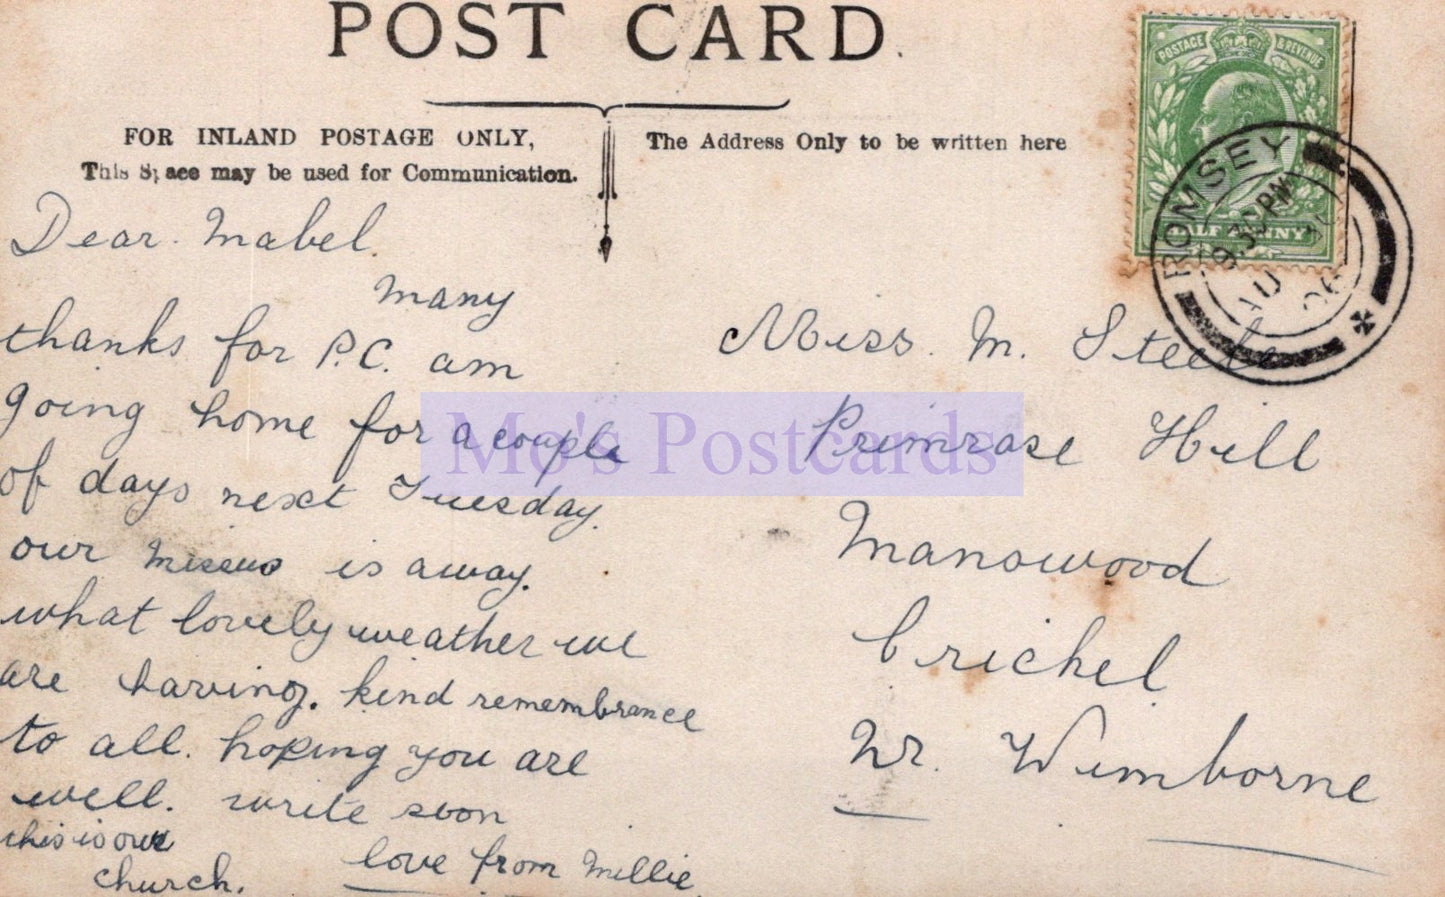 POST CARD.
FOR INLAND POSTAGE ONLY,
This Space may be used for Communication.
The Address Only to be written here
POSTAGE & REVENUE
HALFPENNY
ROMSEY
9.30PM
AU
06
Dear Mabel.
many
thanks for P.C. am
going home for a couple
of days next Tuesday.
our missus is away.
what lovely weather we
are having. kind remembrance
to all. hoping you are
well. write soon
this is our
church.
love from Millie.
Miss. M. Steele
Primrose Hill
Manswood
Crichel
Nr. Wimborne
Mo's Postcards